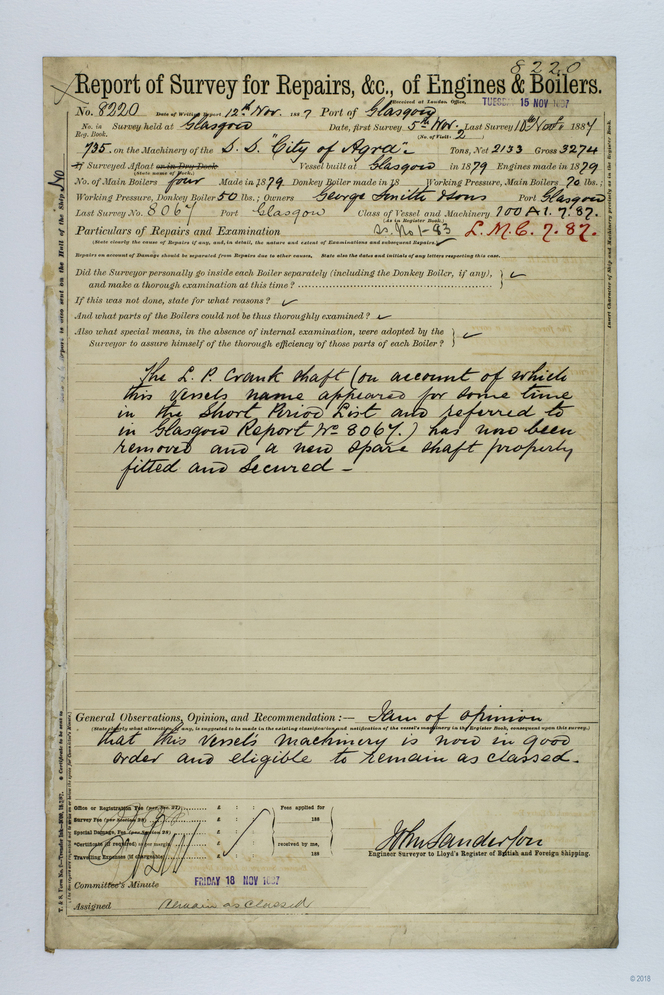 8220
Report of Survey for Repairs, &c., of Engines & Boilers.
Received at London Office, TUESDAY 15 NOV 1887
No. 8220 Date of Writing Report 12th Nov. 1887 Port of Glasgow
No. in Reg. Book. Survey held at Glasgow Date, first Survey 5th Nov. Last Survey 10th Nov. 1887
(No. of Visits 2)
735. on the Machinery of the S.S. "City of Agra" Tons, Net 2133 Gross 3274
If Surveyed Afloat or in Dry Dock Vessel built at Glasgow in 1879 Engines made in 1879
(State name of Dock.)
No. of Main Boilers four Made in 1879 Donkey Boiler made in 18 Working Pressure, Main Boilers 70 lbs.;
Working Pressure, Donkey Boiler 50 lbs.; Owners George Smith & Sons Port Glasgow
Last Survey No. 8067 Port Glasgow Class of Vessel and Machinery 100 A1. 7.87.
(as in Register Book.)
Particulars of Repairs and Examination ss. No 1-83 L.M.C. 7.87.
(State clearly the cause of Repairs if any, and, in detail, the nature and extent of Examinations and subsequent Repairs.)
Repairs on account of Damage should be separated from Repairs due to other causes. State also the dates and initials of any letters respecting this case.
Did the Surveyor personally go inside each Boiler separately (including the Donkey Boiler, if any),
and make a thorough examination at this time?
If this was not done, state for what reasons?
And what parts of the Boilers could not be thus thoroughly examined?
Also what special means, in the absence of internal examination, were adopted by the
Surveyor to assure himself of the thorough efficiency of those parts of each Boiler?
The L. P. Crank shaft (on account of which
this vessels name appeared for some time
in the Short Period List and referred to
in Glasgow Report No 8067.) has now been
removed and a new spare shaft properly
fitted and secured -
General Observations, Opinion, and Recommendation :— I am of opinion
(State clearly what alteration, if any, is suggested to be made in the existing classification and notification of the vessel's machinery in the Register Book, consequent upon this survey.)
that this vessels machinery is now in good
order and eligible to remain as classed.
Office or Registration Fee (per Sec. 21) £ : : Fees applied for
Survey Fee (per Section 28) £ : : 188
Special Damage Fee (per Section 28) £ : :
*Certificate (if required) as per margin £ : : received by me,
Travelling Expenses (if chargeable) £ : : 188
John Sanderson
Engineer Surveyor to Lloyd's Register of British and Foreign Shipping.
Committee's Minute FRIDAY 18 NOV 1887
Assigned Remain as classed
Insert Character of Ship and Machinery precisely as in the Register Book.
© 2018